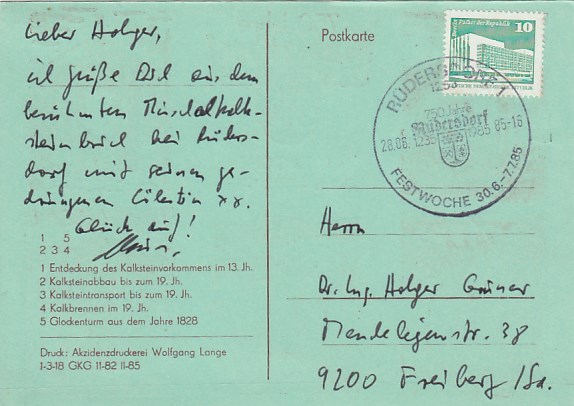 Lieber Holger,
ich grüße Dich aus dem
berühmten Muschelkalk-
steinbruch bei Rüders-
dorf mit seinen ge-
drungenen Cölestin xx.
Glück auf!
1 5
2 3 4
1 Entdeckung des Kalksteinvorkommens im 13. Jh.
2 Kalksteinabbau bis zum 19. Jh.
3 Kalksteintransport bis zum 19. Jh.
4 Kalkbrennen im 19. Jh.
5 Glockenturm aus dem Jahre 1828
Druck: Akzidenzdruckerei Wolfgang Lange
1-3-18 GKG 11-82 II-85
Postkarte
Palast der Republik 10
RÜDERSDORF 1
1253
750 Jahre
Rüdersdorf
28.06. 1235 1985 85-16
FESTWOCHE 30.6.-7.7.85
Herrn
Dr. Ing. Holger
38
9200 Freiberg/Sa.